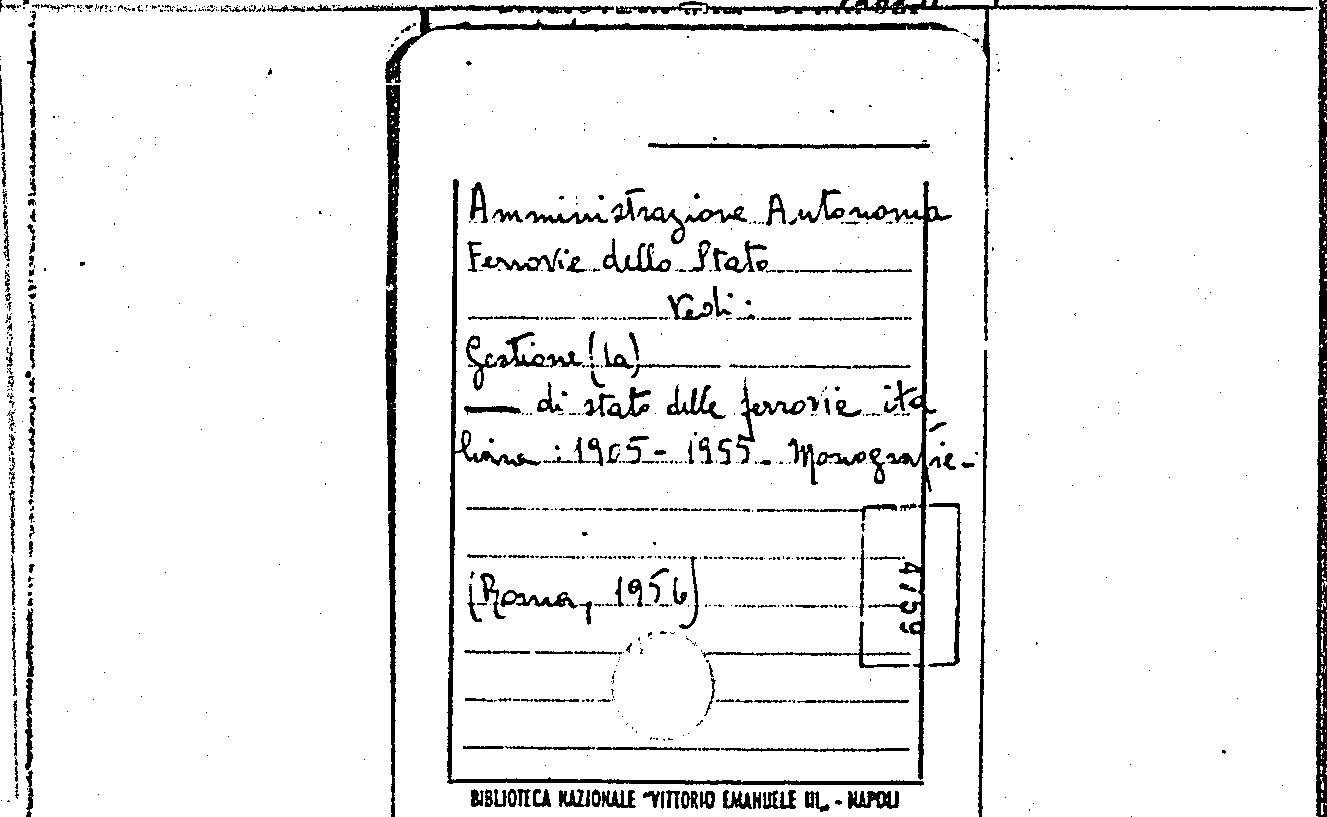 Amministrazione Autonoma
Ferrovie dello Stato
Vedi :
Gestione (la)
— di stato delle ferrovie ita
liane : 1905 - 1955 - Monografie -
(Roma, 1956)
4159
BIBLIOTECA NAZIONALE "VITTORIO EMANUELE III„ - NAPOLI